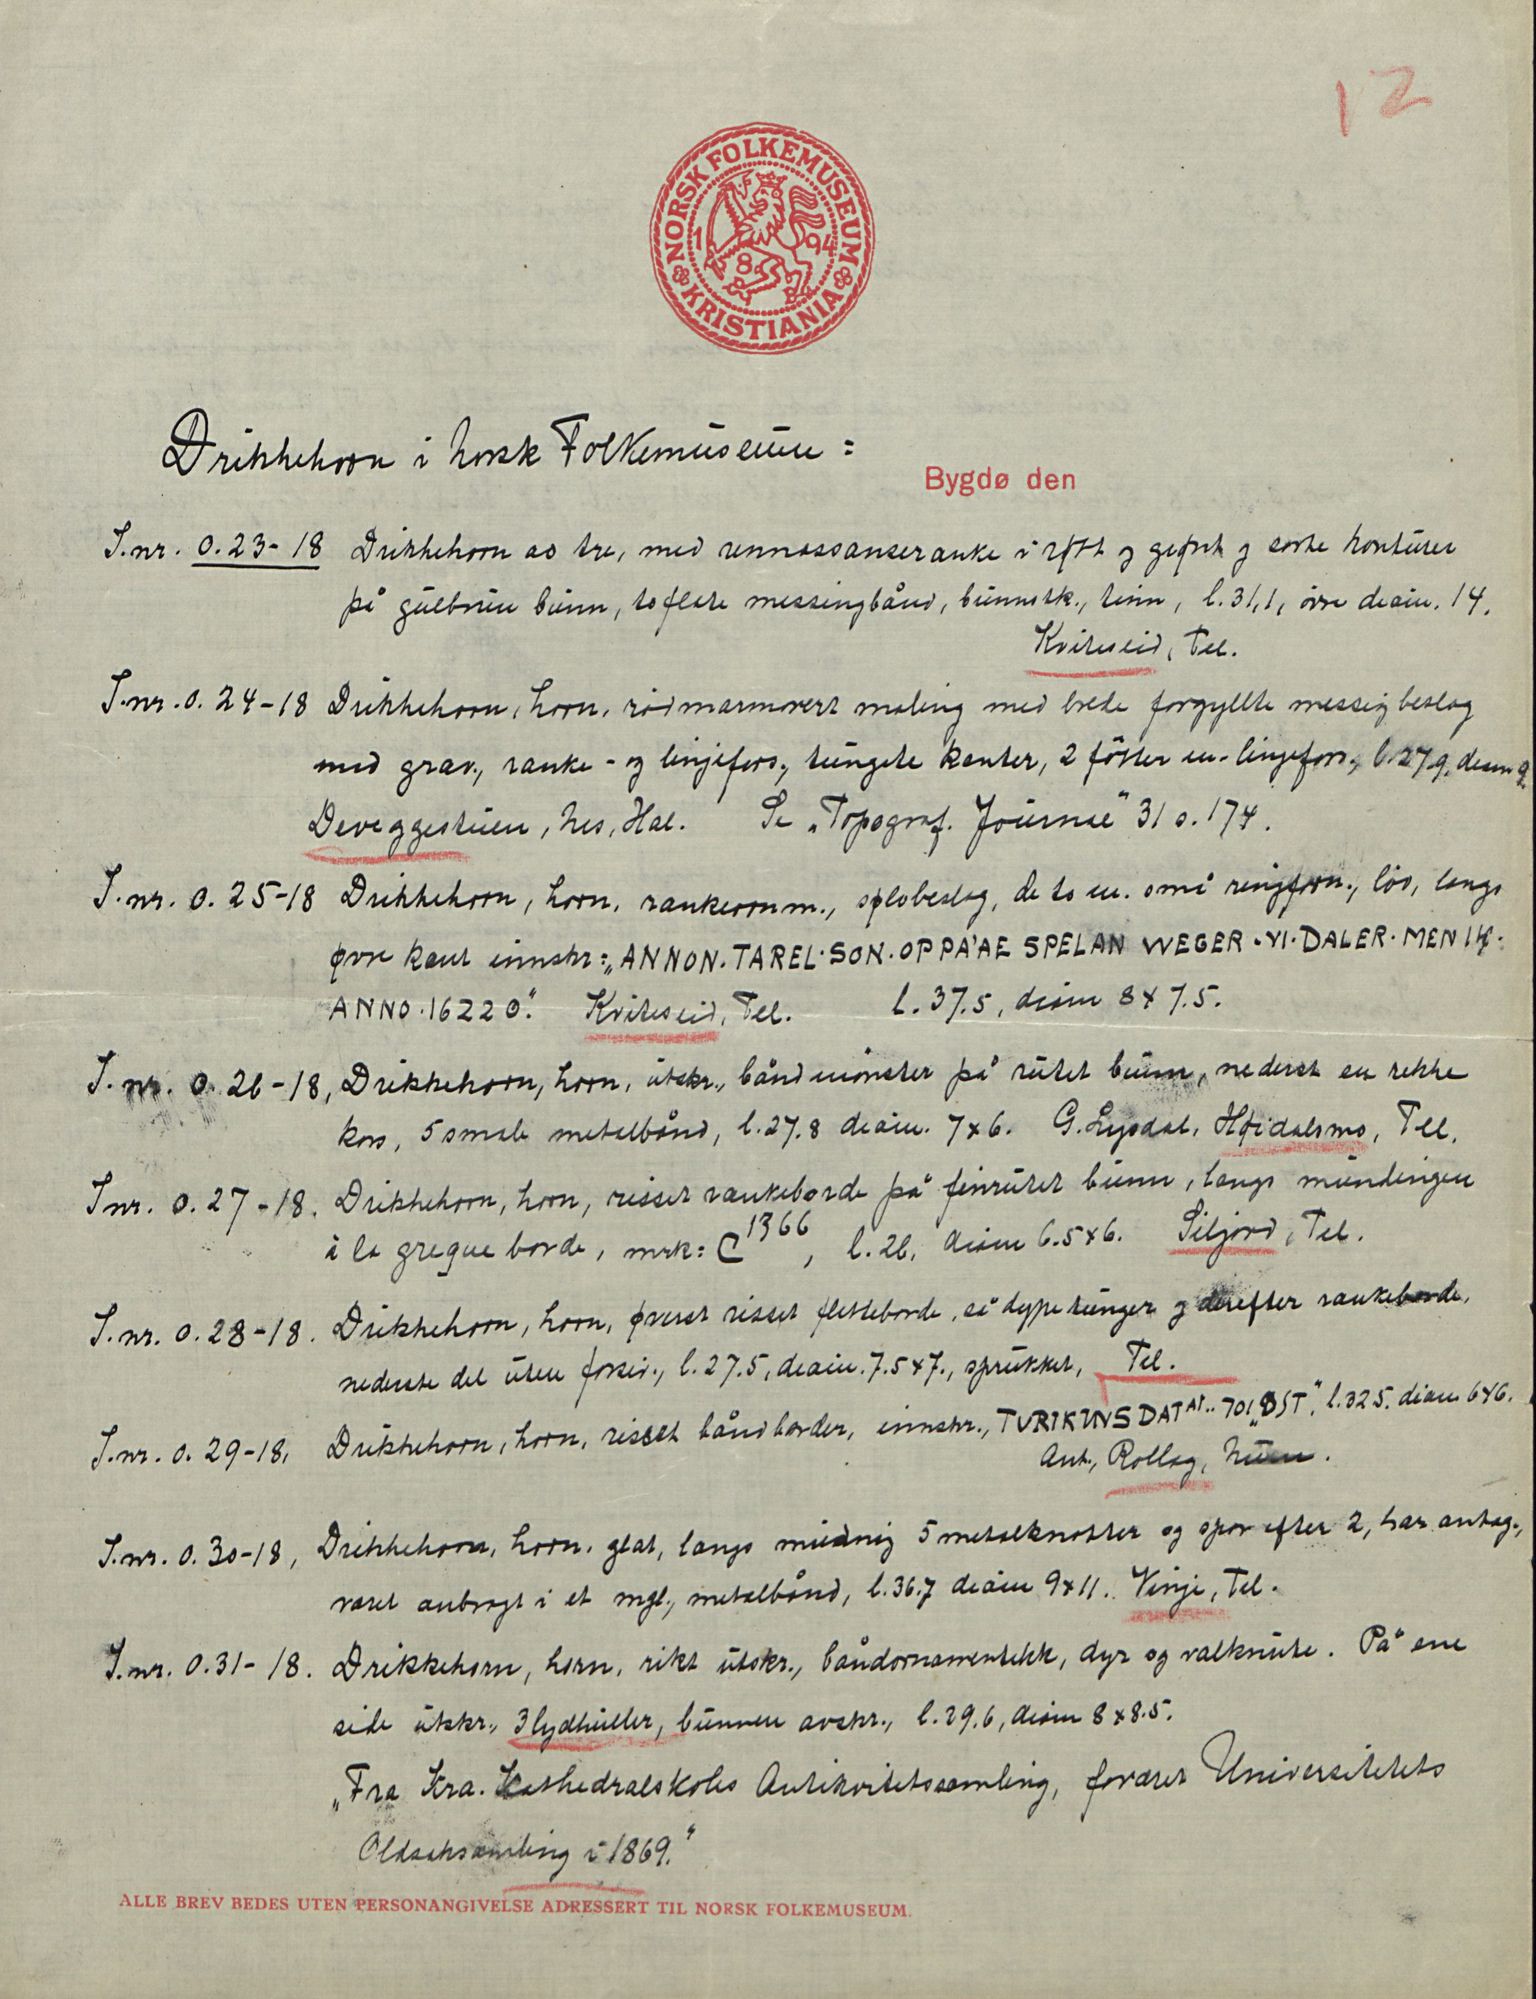 12
NORSK FOLKEMUSEUM
1894
KRISTIANIA
Drikkehorn i Norsk Folkemuseum:
Bygdø den
I.nr. o. 23-18 Drikkehorn av tre, med rennessanseranke i rødt og grønt og sorte konturer
på gulbrun bunn, to flate messingbånd, bunnstk., tinn, l. 31,1, övre diam. 14.
Kviteseid, Tel.
I.nr. o. 24-18 Drikkehorn, horn, rødmarmorert maling med brede forgyllte messingbeslag
med grav., ranke- og linjefors., tungete kanter, 2 fötter m. linjefors., l. 27.9, diam 9.
Deveggestuen, Nes, Hal. Se „Topograf. Journal" 31 s. 174.
I.nr. o. 25-18 Drikkehorn, horn, rankeornm., sølvbeslag, de to m. små ringforn., löv, langs
øvre kant innskr: „ANNON. TAREL· SON. OPPA'AE SPELAN WEGER · VI · DALER · MEN 14.
ANNO · 16220". Kviteseid, Tel. l. 37.5, diam 8 x 7.5.
I. nr. o. 26-18, Drikkehorn, horn, utskr., båndmönster på rutet bunn, nederst en rekke
kors, 5 smale metalbånd, l. 27.8 diam. 7x6. G. Lysdal, Høidalsmo, Tel.
I nr. o. 27-18. Drikkehorn, horn, risset rankeborde på finrutet bunn, langs mundingen
à la greque borde, mrk: C 1366, l. 26, diam 6.5x6. Siljord, Tel.
I.nr. o. 28-18. Drikkehorn, horn, øverst risset fletteborde, så dype tunger og derefter rankeborde,
nederste del uten forsir., l. 27.5, diam. 7.5x7., sprukket, Tel.
I.nr. o. 29-18. Drikkehorn, horn, risset båndborder, innskr., l. 32.5. diam 6x6.
Ant., Rollag, Num.
I.nr. o. 30-18, Drikkehorn, horn. glat, langs mundnig 5 metalknotter og spor efter 2, har antag.,
været anbragt i et mgl., metalbånd, l. 36.7 diam 9x11. Vinje, Tel.
I.nr. o. 31-18. Drikkehorn, horn, rikt utskr., båndornamentikk, dyr og valknute. På ene
side utskr., 3 lydhuller, bunnen avskr., l. 29.6, diam 8 x 8.5.
„Fra Kra. Kathedralskoles Antikvitetssamling, foræret Universitetets
Oldsaksamling i 1869."
ALLE BREV BEDES UTEN PERSONANGIVELSE ADRESSERT TIL NORSK FOLKEMUSEUM.